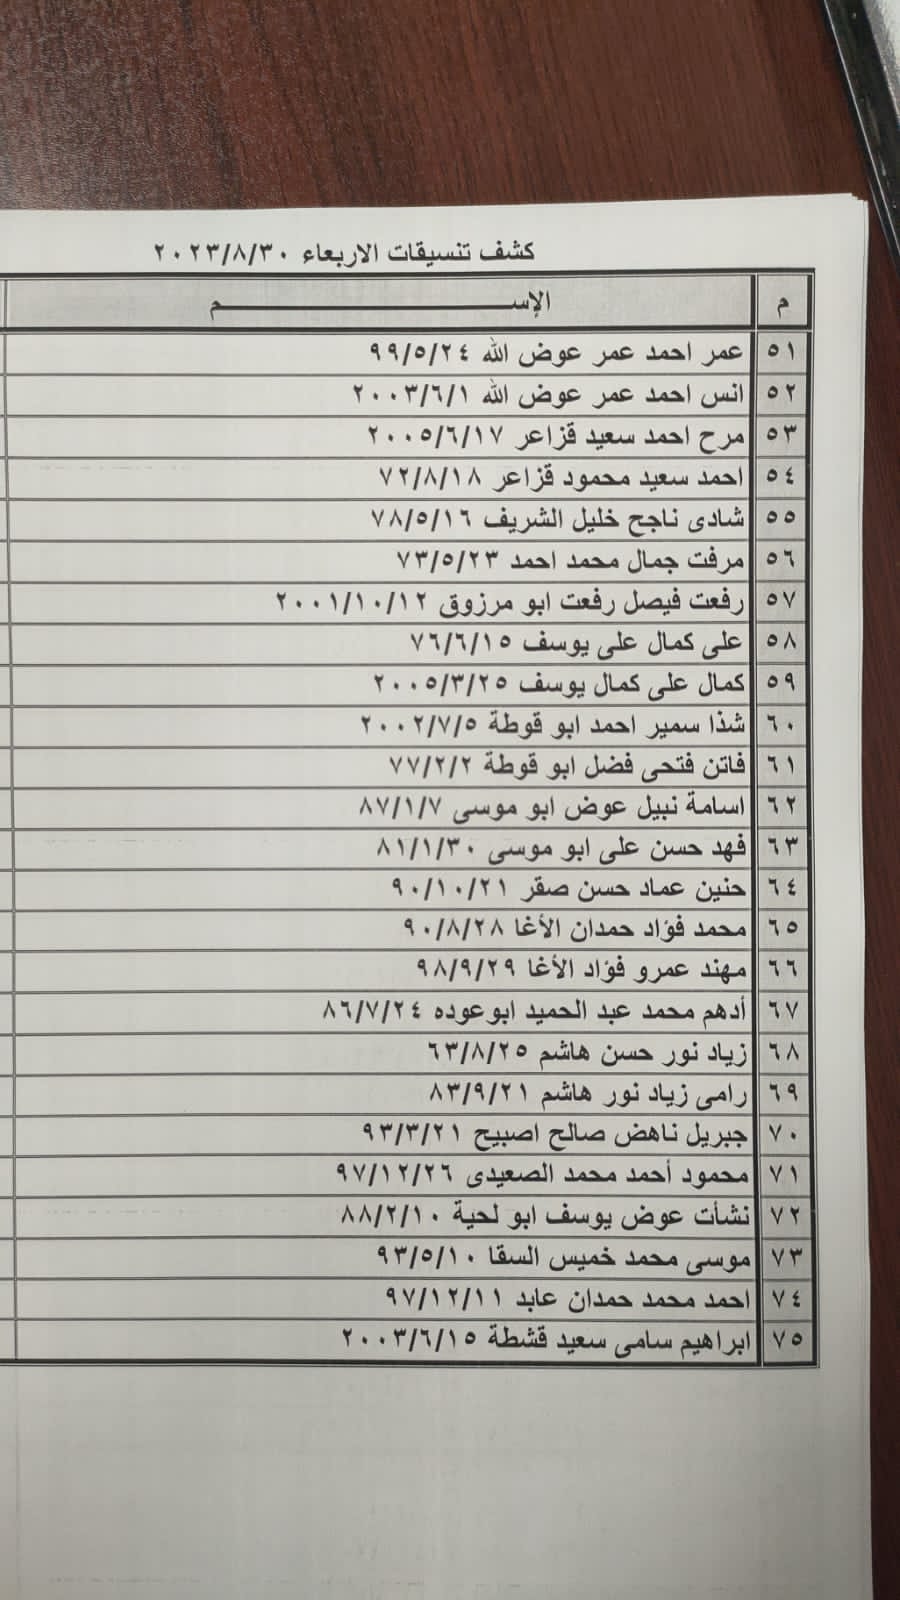 كشف تنسيقات الاربعاء ٢٠٢٣/٨/٣٠
م الإســـــــم
٥١ عمر احمد عمر عوض الله ٩٩/٥/٢٤
٥٢ انس احمد عمر عوض الله ٢٠٠٣/٦/١
٥٣ مرح احمد سعيد قزاعر ٢٠٠٥/٦/١٧
٥٤ احمد سعيد محمود قزاعر ٧٢/٨/١٨
٥٥ شادى ناجح خليل الشريف ٧٨/٥/١٦
٥٦ مرفت جمال محمد احمد ٧٣/٥/٢٣
٥٧ رفعت فيصل رفعت ابو مرزوق ٢٠٠١/١٠/١٢
٥٨ على كمال على يوسف ٧٦/٦/١٥
٥٩ كمال على كمال يوسف ٢٠٠٥/٣/٢٥
٦٠ شذا سمير احمد ابو قوطة ٢٠٠٢/٧/٥
٦١ فاتن فتحى فضل ابو قوطة ٧٧/٢/٢
٦٢ اسامة نبيل عوض ابو موسى ٨٧/١/٧
٦٣ فهد حسن على ابو موسى ٨١/١/٣٠
٦٤ حنين عماد حسن صقر ٩٠/١٠/٢١
٦٥ محمد فؤاد حمدان الأغا ٩٠/٨/٢٨
٦٦ مهند عمرو فؤاد الأغا ٩٨/٩/٢٩
٦٧ أدهم محمد عبد الحميد ابوعوده ٨٦/٧/٢٤
٦٨ زياد نور حسن هاشم ٦٣/٨/٢٥
٦٩ رامى زياد نور هاشم ٨٣/٩/٢١
٧٠ جبريل ناهض صالح اصبيح ٩٣/٣/٢١
٧١ محمود أحمد محمد الصعيدى ٩٧/١٢/٢٦
٧٢ نشأت عوض يوسف ابو لحية ٨٨/٢/١٠
٧٣ موسى محمد خميس السقا ٩٣/٥/١٠
٧٤ احمد محمد حمدان عابد ٩٧/١٢/١١
٧٥ ابراهيم سامى سعيد قشطة ٢٠٠٣/٦/١٥